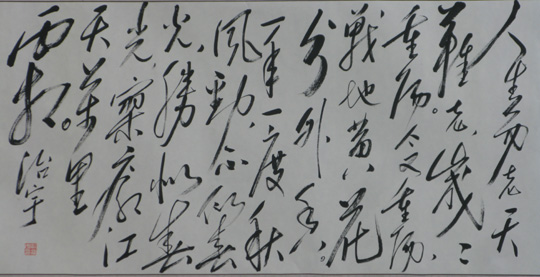 人生易老天
難老，歲々
重陽。今又重陽，
戰地黄花
分外香。
一年一度秋
風勁，不似春
光，勝似春
光，寥廓江
天萬里
霜。治宇